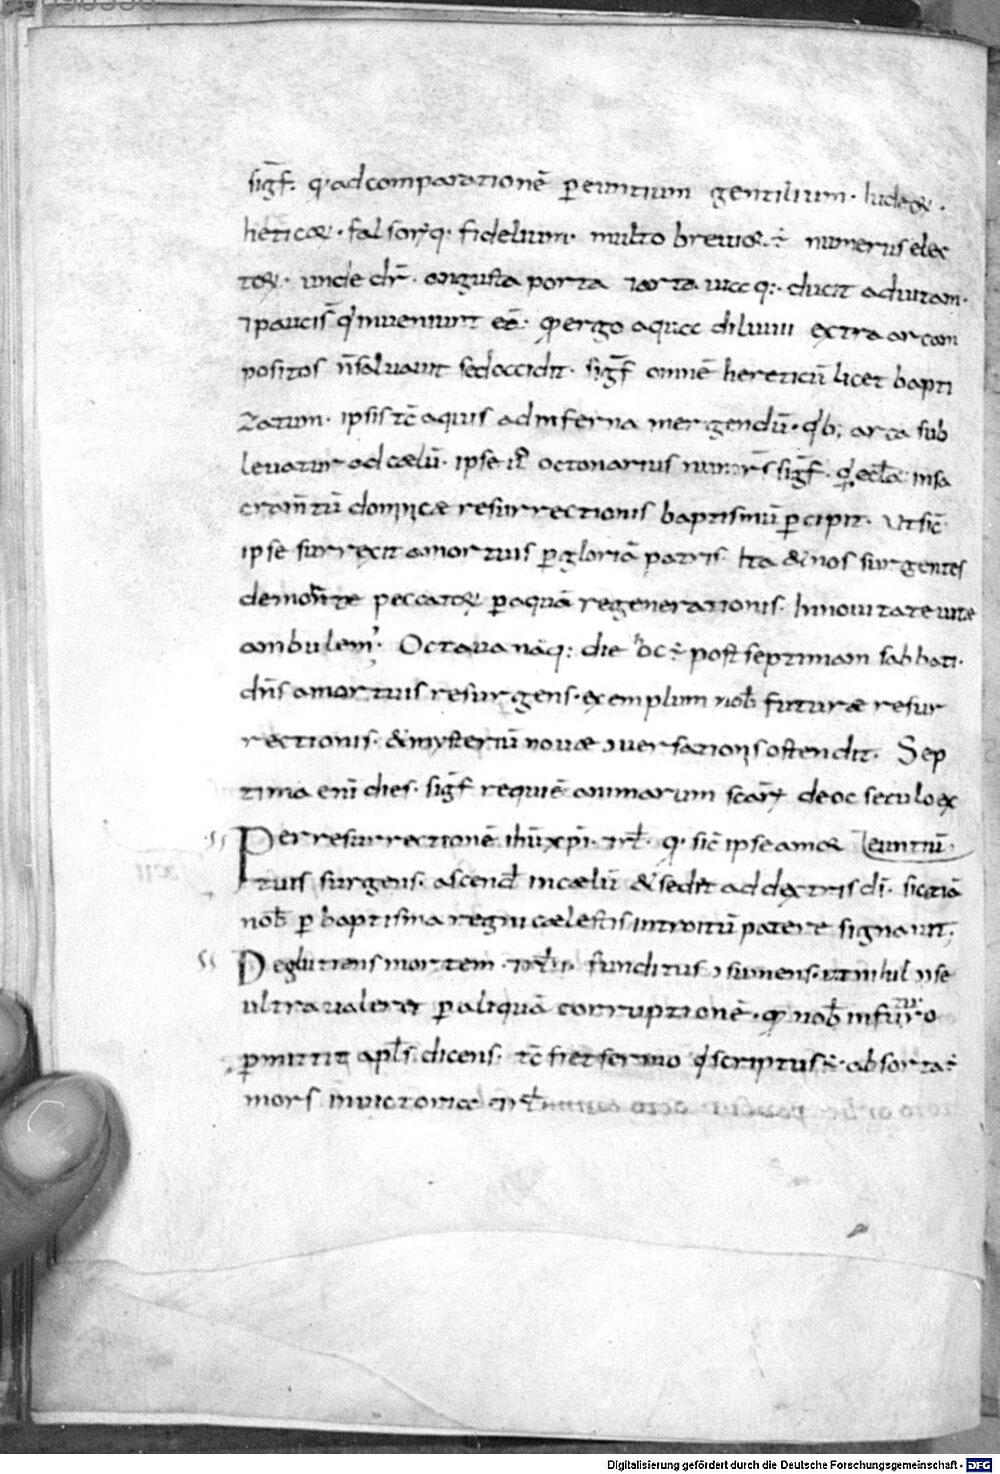 sigf̄. q·adcomparationē ꝑeuntium gentilium· Iudeoꝝ·
hēticoꝝ·falsorūq· fidelium· multo breuior·÷ numerus elec
toꝝ· unde dr̄· angusta porta ⁊arta uia q:· ducit aduitam·
⁊paucis̄ q̇ inueniunt eā: qđ ergo aqua diluuii extra arcam
positos n̄saluauit sedoccidit· sigf̄ omnē hereticū licet bapti
zatum· ipsis tc̄ aquis adinferna mergendū· q̇b; arca sub
leuatur adcælū· ipse u͛ octonarius numer̄s sigf̄· qđ ecl̄a insa
cram̄tū dominicæ resurrectionis baptismū ꝑcipit· Ut sic̄
ipse surrexit amortuis ꝑgloriā patris· Ita &nos surgentes
demorte peccatoꝝ ꝑaquā regenerationis· Innouitate uitæ
ambulem᾽· Octaua nāq: die hoc ÷ post septimam sabbati·
dn̄s amortuis resurgens· exemplum nob̄ futuræ resur
rectionis· &mysteriū nouæ ↄuersationis ostendit· Sep
tima eni dies· sigf̄ requiē animarum sc̄arū deoc seculo ex
Per resurrectionē ihū xpī· irl̄· q· sic̄ ipse amor euntiū·
tuis surgens· ascend̄ incælū &sedit addextris dī· sic&iā
nob̄ ꝑ baptisma regni cælestis introitū patere signauit;
Deglutiens mortem· irl̄ū· funditus ↄsumens· utnihil inse
ultra ualeret ꝑ aliquā corruptionē· qđ nob̄ infuturo
ꝑmittit apl̄s dicens· tc̄ fiet sermo q̇ scriptus ÷· absorta÷
mors inuictoria irl̄